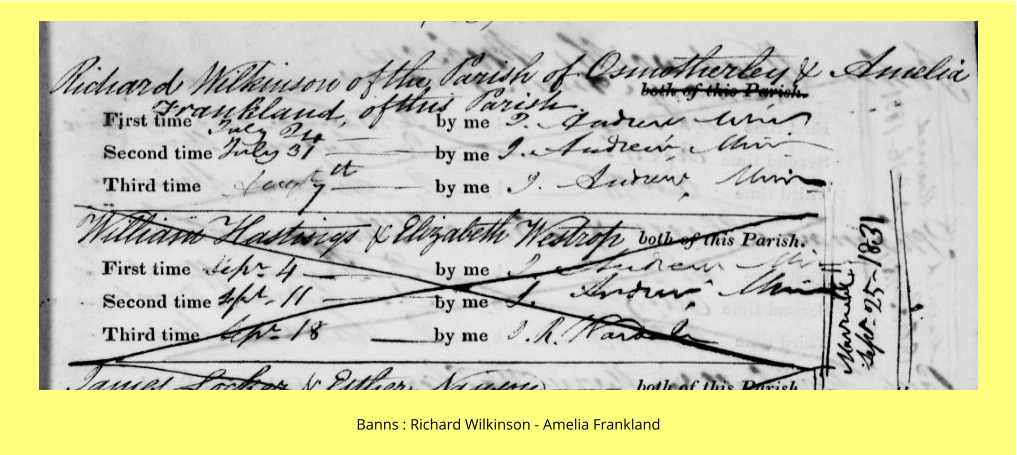 Richard Wilkinson of the Parish of Osmotherley & Amelia
both of this Parish.
Frankland, of this Parish.
First time July 24 by me J. Andrew Min
Second time July 31 by me J. Andrew Min
Third time Augt 7th by me J. Andrew, Min
William Hastings & Elizabeth Westrop both of this Parish.
First time Sepr 4 by me J. Andrew Min
Second time Sepr 11 by me J. Andrew Min
Third time Sepr 18 by me J. R.
Married
Sepr 25-1831
James & Esther both of this Parish
Banns : Richard Wilkinson - Amelia Frankland